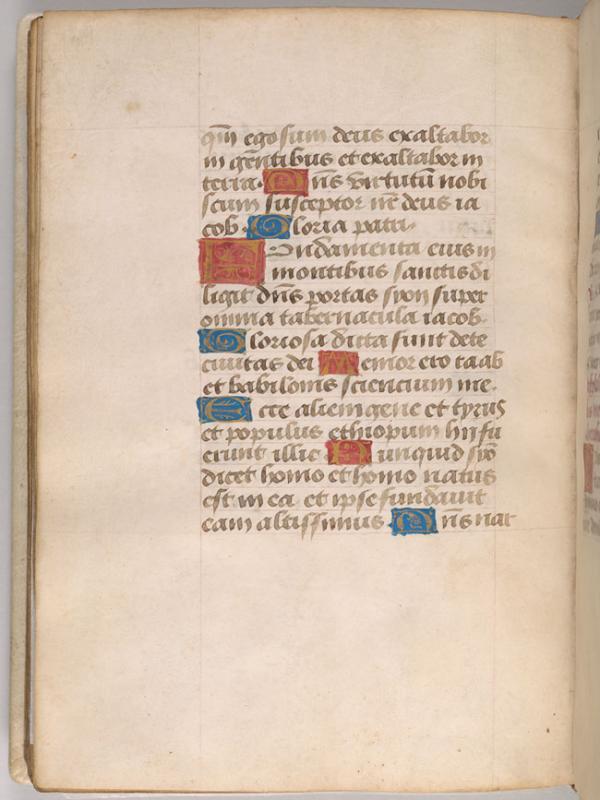 qm̄ ego sum deus exaltabor
in gentibus et exaltabor in
terra. Dn̄s virtutū nobi
scum susceptor nr̄ deus ia
cob. Gloria patri.
Fundamenta eius in
montibus sanctis di
ligit dn̄s portas syon super
omnia tabernacula iacob.
Gloriosa dicta sunt de te
ciuitas dei Memor ero raab
et babilonis sciencium me.
Ecce alienigene et tyrus
et populus ethiopum hij fu
erunt illic Nunquid syō
dicet homo et homo natus
est in ea et ipse fundauit
eam altissimus. Dn̄s nar